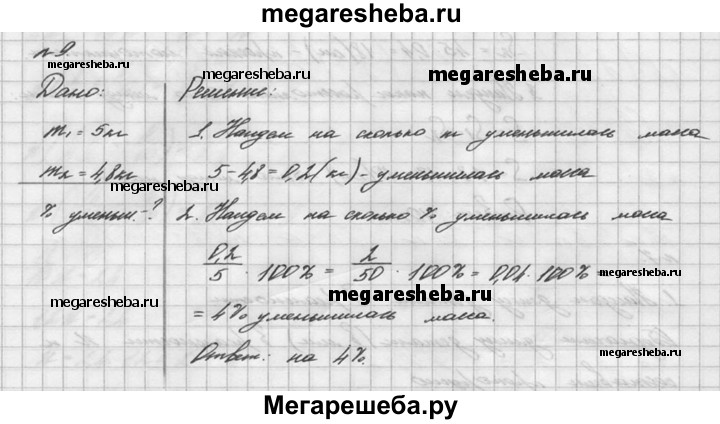 megaresheba.ru
№9.
megaresheba.ru
megaresheba.ru
megaresheba.ru
Дано:
Решение:
m₁ = 5кг
1. Найдем на сколько m уменьшилась масса
m₂ = 4,8кг
5 - 4,8 = 0,2 (кг) - уменьшилась масса
megaresheba.ru
% уменьш. - ?
2. Найдем на сколько % уменьшилась масса
0,2/5 · 100% = 2/50 · 100% = 0,04 · 100%
megaresheba.ru
megaresheba.ru
megaresheba.ru
= 4% уменьшилась масса.
megaresheba.ru
megaresheba.ru
Ответ: на 4%.
Мегарешеба.ру